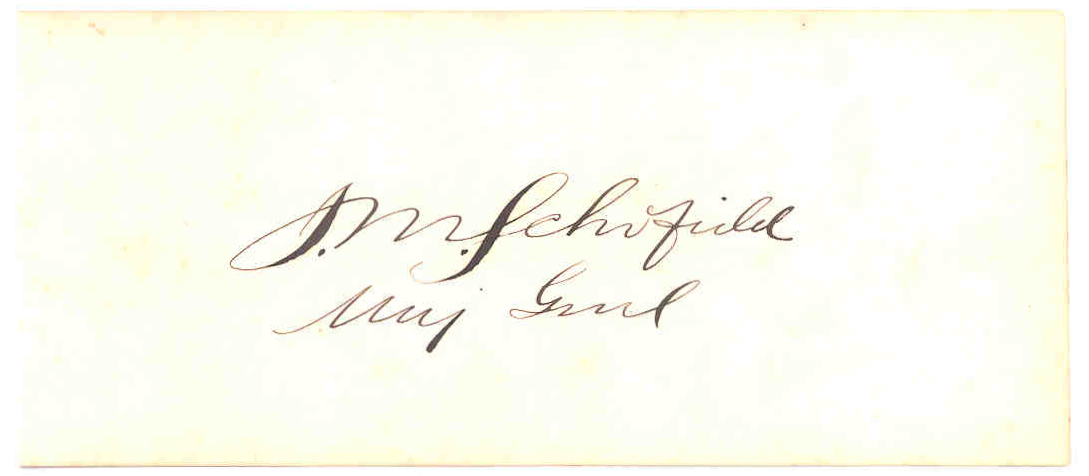 J. M. Schofield
Maj Genl